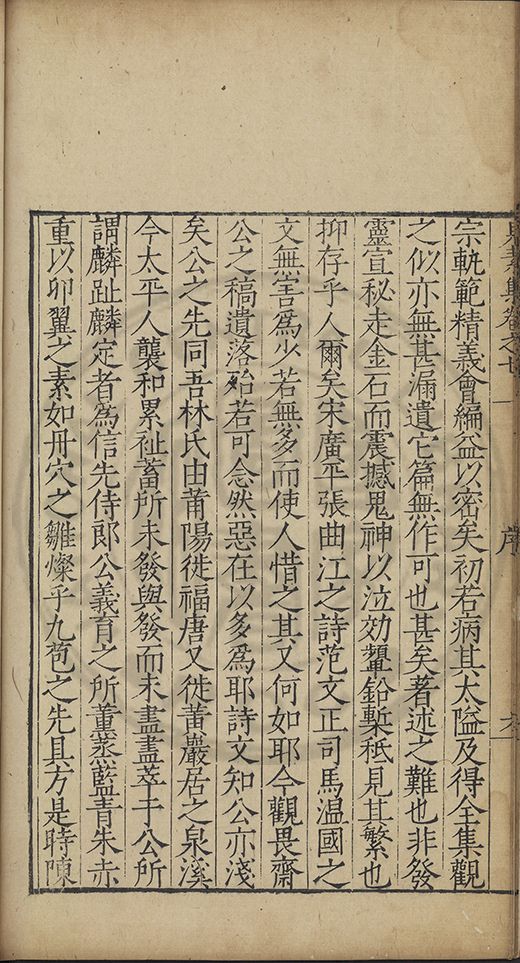 宗軌範精義會編益以密矣初若病其太隘及得全集觀
之似亦無甚漏遺它篇無作可也甚矣著述之難也非發
靈宣秘走金石而震撼鬼神以泣効蠶鉛槧秪見其繁也
抑存乎人爾矣宋廣平張曲江之詩范文正司馬温國之
文無害爲少若無多而使人惜之其又何如耶今觀畏齋
公之稿遺落殆若可念然惡在以多爲耶詩文知公亦淺
矣公之先同吾林氏由莆陽徙福唐又徙黃巖居之泉溪
今太平人襲和累祉蓄所未發與發而未盡盡萃于公所
謂麟趾麟定者爲信先侍郎公義育之所薰蒸藍青朱赤
重以卯翼之素如丹穴之雛燦乎九苞之先具方是時陳